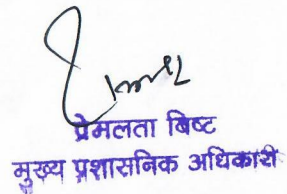 प्रेमलता बिष्ट
मुख्य प्रशासनिक अधिकारी